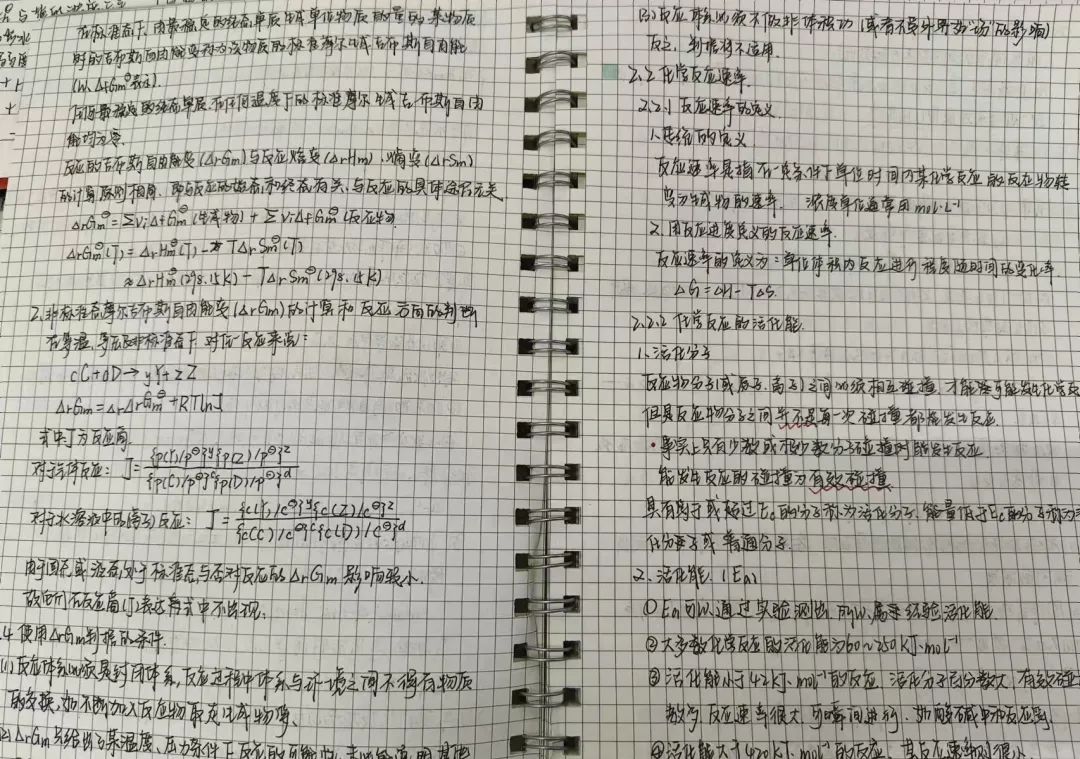 在标准态下,由最稳定的纯态单质生成单位物质的量的某物质
时的吉布斯自由能变称为该物质的标准摩尔生成吉布斯自由能
(以ΔfGm^⊖表示).
任何最稳定的纯态单质在任何温度下的标准摩尔生成吉布斯自由
能均为零.
反应的吉布斯自由能变(ΔrGm)与反应焓变(ΔrHm)、熵变(ΔrSm)
的计算原则相同,即与反应的始态和终态有关,与反应的具体途径无关
ΔrGm^⊖=∑νiΔfGm^⊖(生成物)+∑νiΔfGm^⊖(反应物)
ΔrGm^⊖(T)=ΔrHm^⊖(T)-TΔrSm^⊖(T)
≈ΔrHm^⊖(298.15K)-TΔrSm^⊖(298.15K)
2.非标准态摩尔吉布斯自由能变(ΔrGm)的计算和反应方向的判断
在等温、等压及非标准态下,对任一反应来说:
cC+dD→yY+zZ
ΔrGm=ΔrGm^⊖+RTlnJ
式中J为反应商
对于气体反应: J={p(Y)/p^⊖}^y{p(Z)/p^⊖}^z/{p(C)/p^⊖}^c{p(D)/p^⊖}^d
对于水溶液中的(离子)反应: J={c(Y)/c^⊖}^y{c(Z)/c^⊖}^z/{c(C)/c^⊖}^c{c(D)/c^⊖}^d
由于固态或液态处于标准态与否对反应的ΔrGm影响较小.
故它们在反应商(J)表达式中不出现.
4.使用ΔrGm判据的条件.
(1)反应体系必须是封闭体系,反应过程中体系与环境之间不得有物质
的交换,如不断加入反应物或取走生成物等.
(2)ΔrGm只给出了某温度、压力条件下反应的可能性,
(3)反应体系必须不做非体积功(或者不受外界如"场"的影响)
反之,判据将不适用.
2.2化学反应速率.
2.2.1反应速率的定义
1.传统的定义
反应速率是指在一定条件下单位时间内某化学反应的反应物转
变为生成物的速率. 浓度单位通常用mol·L⁻¹
2.用反应进度定义的反应速率.
反应速率的定义为:单位体积内反应进行程度随时间的变化率.
ΔG=ΔH-TΔS.
2.2.2化学反应的活化能.
1.活化分子
反应物分子(或原子、离子)之间必须相互碰撞,才能可能发生化学反
但是反应物分子之间并不是每一次碰撞都能发生反应.
·事实上只有少数或极少数分子碰撞时能发生反应
能发生反应的碰撞为有效碰撞
具有等于或超过Ec的分子称为活化分子.能量低于Ec的分子称为非
化分子或普通分子.
2.活化能.(Ea)
①Ea可以通过实验测出,所以,属于经验活化能.
②大多数化学反应的活化能为60~250kJ·mol⁻¹
③活化能小于42kJ·mol⁻¹的反应,活化分子百分数大,有效碰撞
数多,反应速率很大,可瞬间进行.如酸碱中和反应等.
④活化能大于420kJ·mol⁻¹的反应,其反应速率则很小.